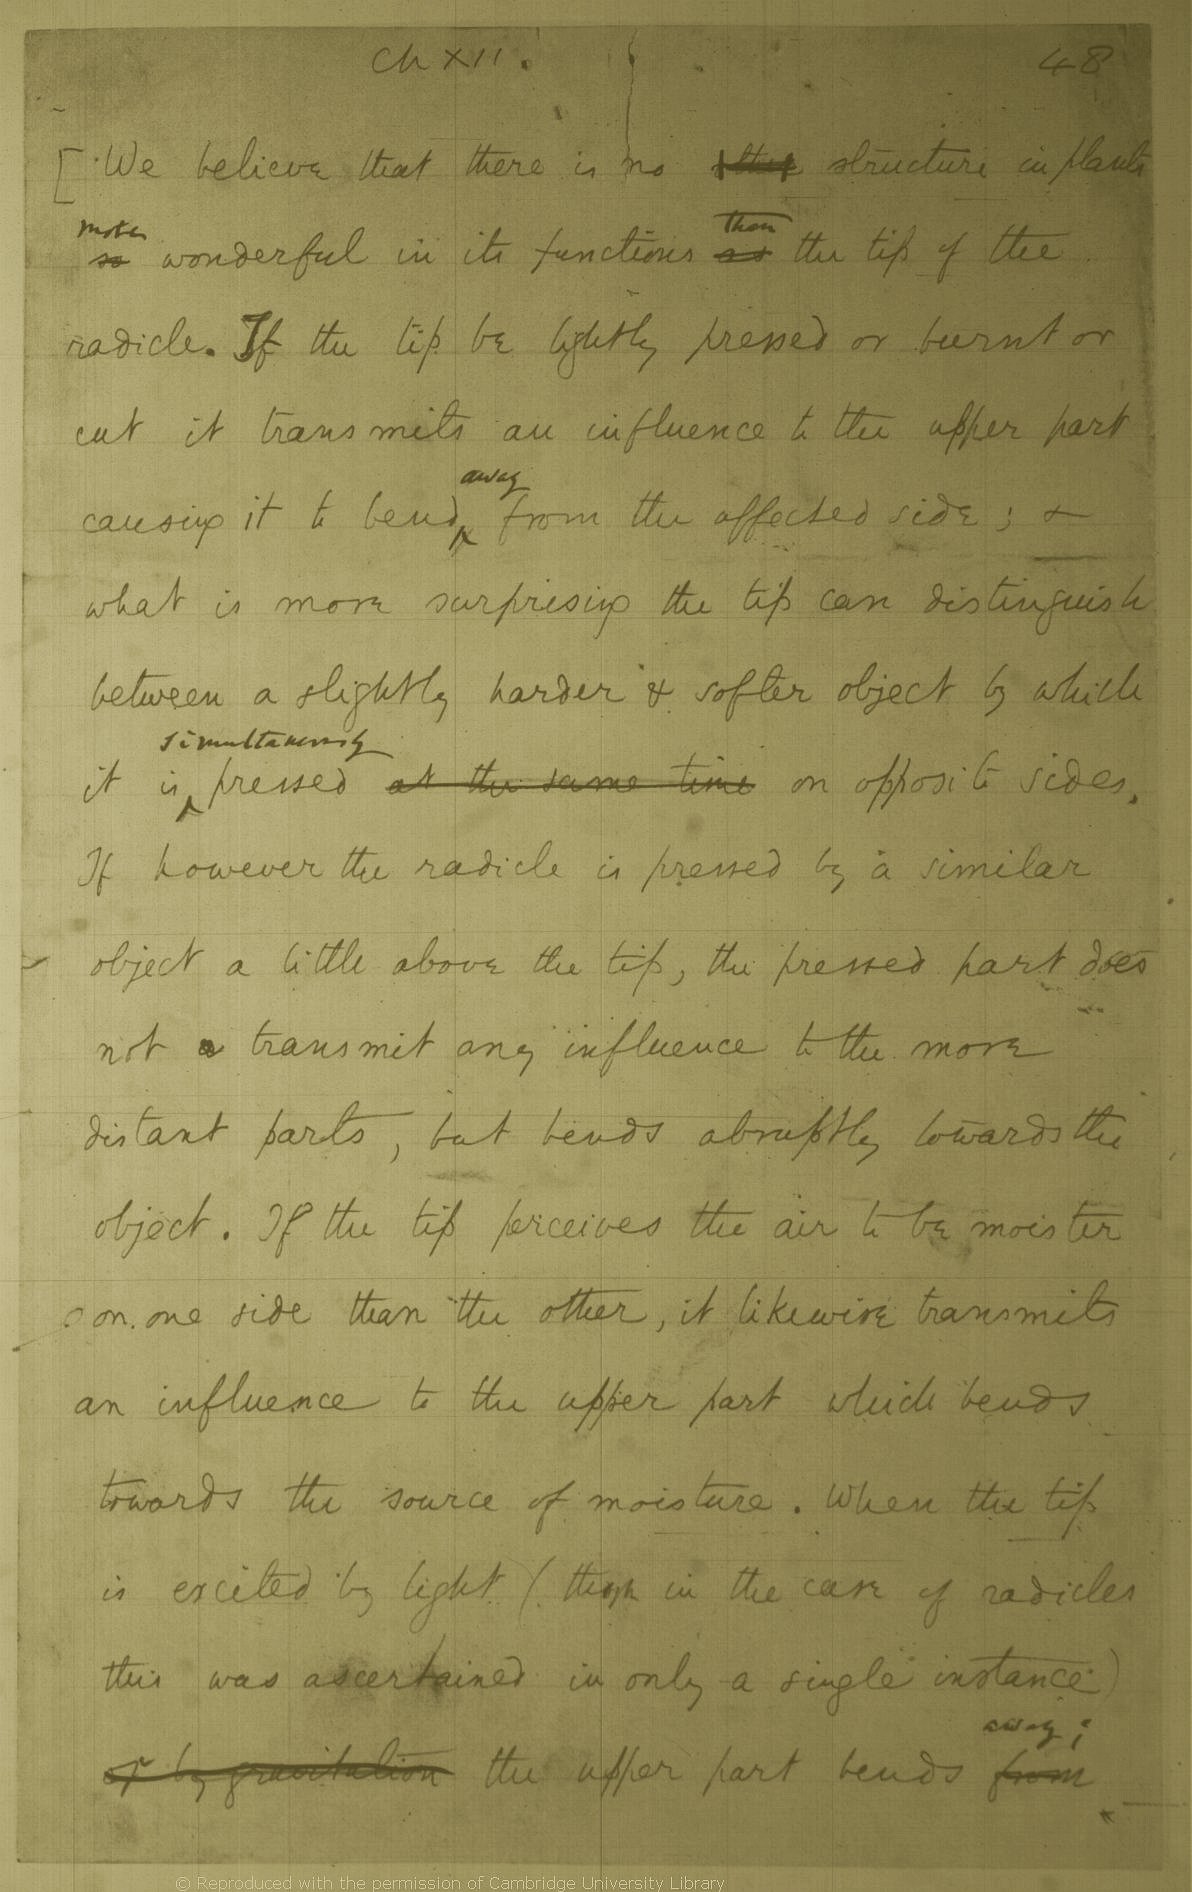 Ch XII.
48
[We believe that there is no other structure in plants
more
so wonderful in its functions as the tip of the
than
radicle. If the tip be lightly pressed or burnt or
cut it transmits an influence to the upper part
away
causing it to bend from the affected side; &
what is more surprising the tip can distinguish
between a slightly harder & softer object by which
simultaneously
it is pressed at the same time on opposite sides.
If however the radicle is pressed by a similar
object a little above the tip, the pressed part does
not a transmit any influence to the more
distant parts, but bends abruptly towards the
object. If the tip perceives the air to be moister
on one side than the other, it likewise transmits
an influence to the upper part which bends
towards the source of moisture. When the tip
is excited by light (though in the case of radicles
this was ascertained in only a single instance)
away;
or by gravitation the upper part bends from
© Reproduced with the permission of Cambridge University Library